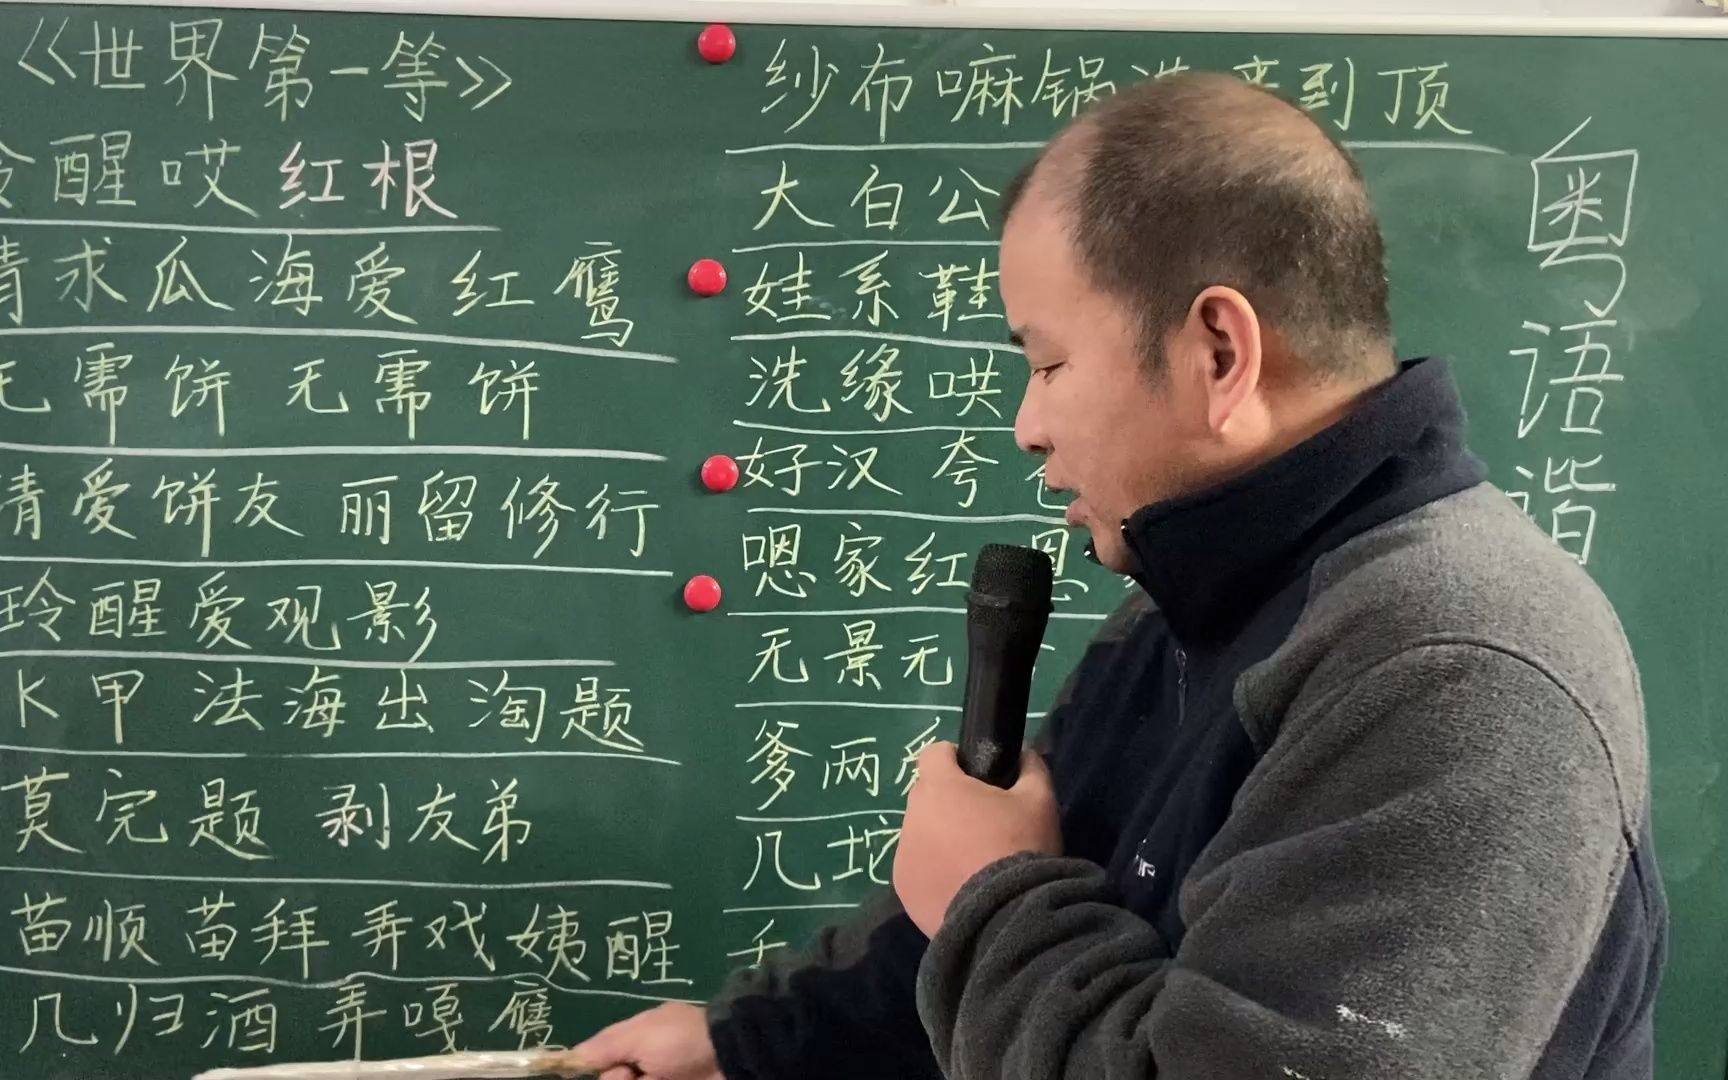 《世界第一等》
醒哎红根
求瓜海爱红鹰
无需饼 无需饼
清爱饼友 丽留修行
玲醒爱观影
K甲 法海出 淘题
莫完题 剥友弟
苗顺 苗拜 弄戏 姨醒
几归酒 弄嘎鹰
纱布嘛锅 到顶
大白公
娃系鞋
洗缘哄
好汉 夸
嗯家红 恩
无景无
爹两爱
几坨
粤语谐